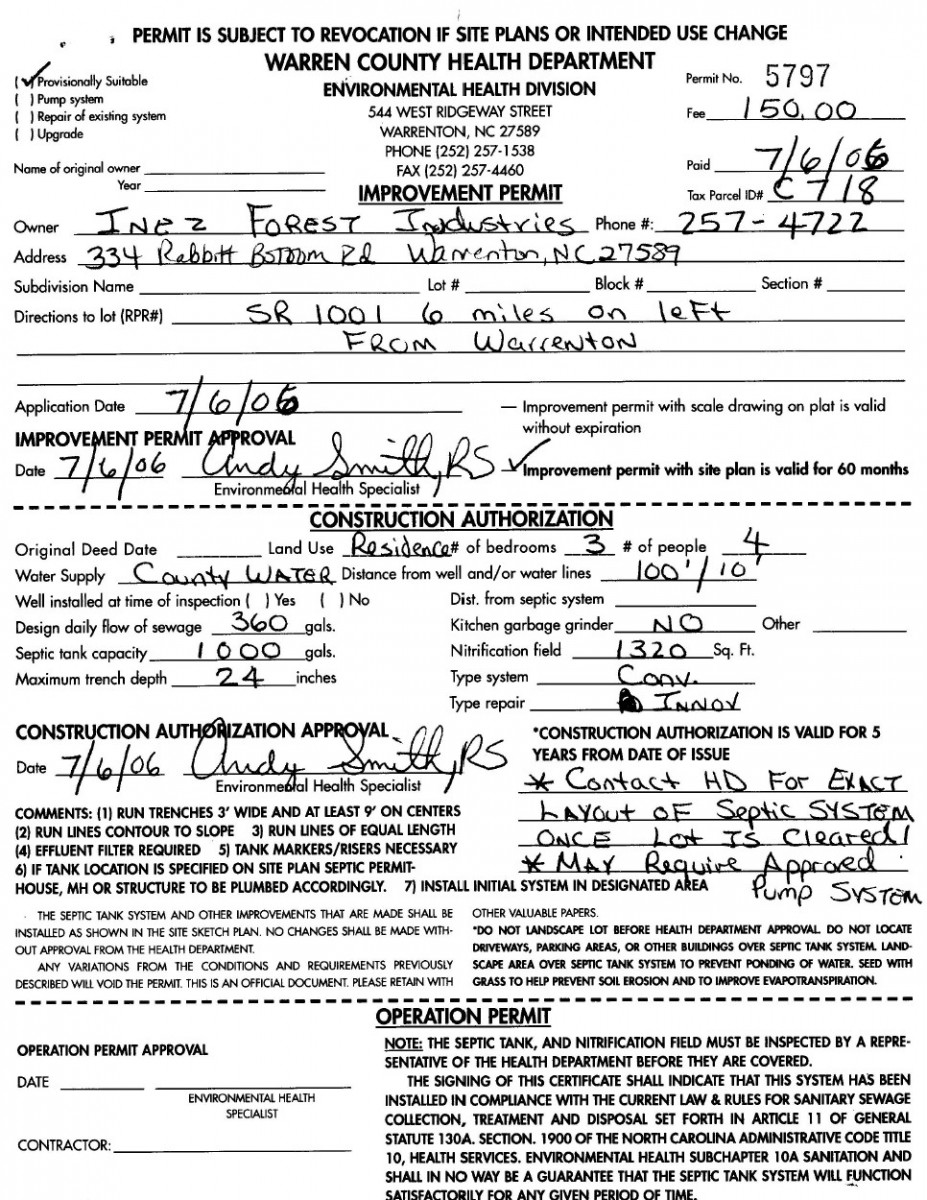 PERMIT IS SUBJECT TO REVOCATION IF SITE PLANS OR INTENDED USE CHANGE
WARREN COUNTY HEALTH DEPARTMENT
ENVIRONMENTAL HEALTH DIVISION
544 WEST RIDGEWAY STREET
WARRENTON, NC 27589
PHONE (252) 257-1538
FAX (252) 257-4460
(✓) Provisionally Suitable
( ) Pump system
( ) Repair of existing system
( ) Upgrade
Permit No. 5797
Fee 150.00
Name of original owner
Year
Paid 7/6/06
Tax Parcel ID# C718
IMPROVEMENT PERMIT
Owner INEZ FOREST Industries Phone #: 257-4722
Address 334 Rabbitt Bottom Rd Warrenton, NC 27589
Subdivision Name Lot # Block # Section #
Directions to lot (RPR#) SR 1001 6 miles on left
FROM Warrenton
Application Date 7/6/06
— Improvement permit with scale drawing on plat is valid
without expiration
IMPROVEMENT PERMIT APPROVAL
Date 7/6/06 Andy Smith, RS ✓ Improvement permit with site plan is valid for 60 months
Environmental Health Specialist
CONSTRUCTION AUTHORIZATION
Original Deed Date Land Use Residence # of bedrooms 3 # of people 4
Water Supply County WATER Distance from well and/or water lines 100'/10'
Well installed at time of inspection ( ) Yes ( ) No Dist. from septic system
Design daily flow of sewage 360 gals. Kitchen garbage grinder NO Other
Septic tank capacity 1000 gals. Nitrification field 1320 Sq. Ft.
Maximum trench depth 24 inches Type system Conv.
Type repair INNOV
CONSTRUCTION AUTHORIZATION APPROVAL
Date 7/6/06 Andy Smith, RS
Environmental Health Specialist
*CONSTRUCTION AUTHORIZATION IS VALID FOR 5
YEARS FROM DATE OF ISSUE
* Contact HD FOR EXACT
LAYOUT OF Septic SYSTEM
ONCE Lot IS Cleared!
* MAY Require Approved
Pump SYSTEM
COMMENTS: (1) RUN TRENCHES 3' WIDE AND AT LEAST 9' ON CENTERS
(2) RUN LINES CONTOUR TO SLOPE 3) RUN LINES OF EQUAL LENGTH
(4) EFFLUENT FILTER REQUIRED 5) TANK MARKERS/RISERS NECESSARY
6) IF TANK LOCATION IS SPECIFIED ON SITE PLAN SEPTIC PERMIT-
HOUSE, MH OR STRUCTURE TO BE PLUMBED ACCORDINGLY. 7) INSTALL INITIAL SYSTEM IN DESIGNATED AREA
THE SEPTIC TANK SYSTEM AND OTHER IMPROVEMENTS THAT ARE MADE SHALL BE
INSTALLED AS SHOWN IN THE SITE SKETCH PLAN. NO CHANGES SHALL BE MADE WITH-
OUT APPROVAL FROM THE HEALTH DEPARTMENT.
ANY VARIATIONS FROM THE CONDITIONS AND REQUIREMENTS PREVIOUSLY
DESCRIBED WILL VOID THE PERMIT. THIS IS AN OFFICIAL DOCUMENT. PLEASE RETAIN WITH
OTHER VALUABLE PAPERS.
*DO NOT LANDSCAPE LOT BEFORE HEALTH DEPARTMENT APPROVAL. DO NOT LOCATE
DRIVEWAYS, PARKING AREAS, OR OTHER BUILDINGS OVER SEPTIC TANK SYSTEM. LAND-
SCAPE AREA OVER SEPTIC TANK SYSTEM TO PREVENT PONDING OF WATER. SEED WITH
GRASS TO HELP PREVENT SOIL EROSION AND TO IMPROVE EVAPOTRANSPIRATION.
OPERATION PERMIT
OPERATION PERMIT APPROVAL
DATE
ENVIRONMENTAL HEALTH
SPECIALIST
CONTRACTOR:
NOTE: THE SEPTIC TANK, AND NITRIFICATION FIELD MUST BE INSPECTED BY A REPRE-
SENTATIVE OF THE HEALTH DEPARTMENT BEFORE THEY ARE COVERED.
THE SIGNING OF THIS CERTIFICATE SHALL INDICATE THAT THIS SYSTEM HAS BEEN
INSTALLED IN COMPLIANCE WITH THE CURRENT LAW & RULES FOR SANITARY SEWAGE
COLLECTION, TREATMENT AND DISPOSAL SET FORTH IN ARTICLE 11 OF GENERAL
STATUTE 130A. SECTION. 1900 OF THE NORTH CAROLINA ADMINISTRATIVE CODE TITLE
10, HEALTH SERVICES. ENVIRONMENTAL HEALTH SUBCHAPTER 10A SANITATION AND
SHALL IN NO WAY BE A GUARANTEE THAT THE SEPTIC TANK SYSTEM WILL FUNCTION
SATISFACTORILY FOR ANY GIVEN PERIOD OF TIME.